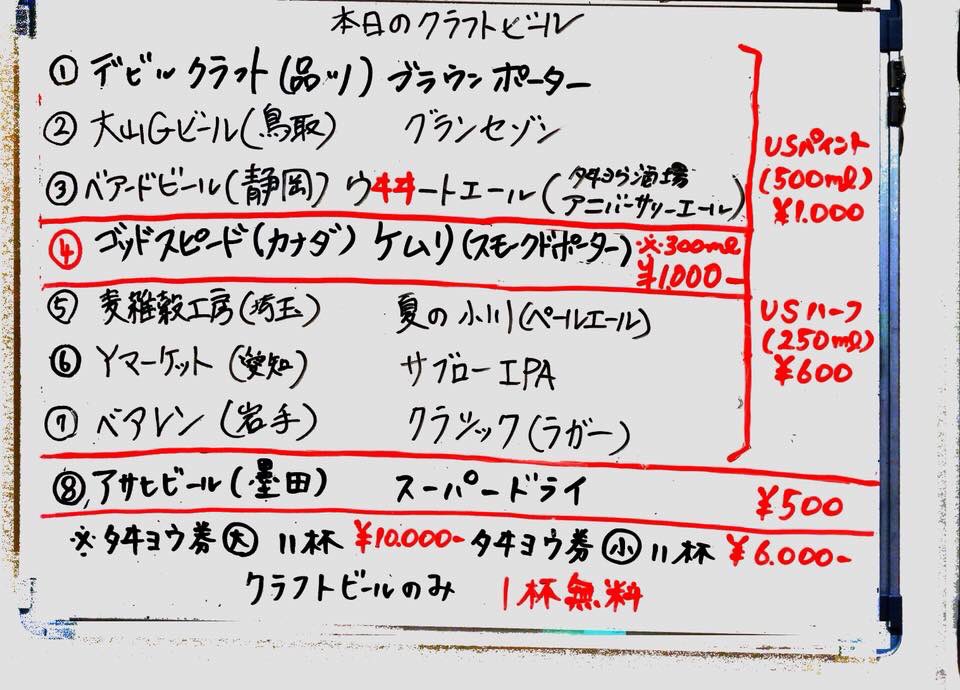 本日のクラフトビール
① デビルクラフト(品川) ブラウンポーター
② 大山Gビール(鳥取) グランセゾン
③ ベアードビール(静岡) ウヰヰートエール(タキヨウ酒場
アニバーサリーエール)
USパイント
(500ml)
¥1.000
④ ゴッドスピード(カナダ) ケムリ(スモークドポーター) ※300ml
¥1000-
⑤ 麦雑穀工房(埼玉) 夏の小川(ペールエール)
USハーフ
(250ml)
¥600
⑥ Yマーケット(愛知) サブローIPA
⑦ ベアレン(岩手) クラシック(ラガー)
⑧ アサヒビール(墨田) スーパードライ ¥500
※タキヨウ券㊅ 11杯 ¥10.000- タキヨウ券㊙ 11杯 ¥6.000-
クラフトビールのみ 1杯無料